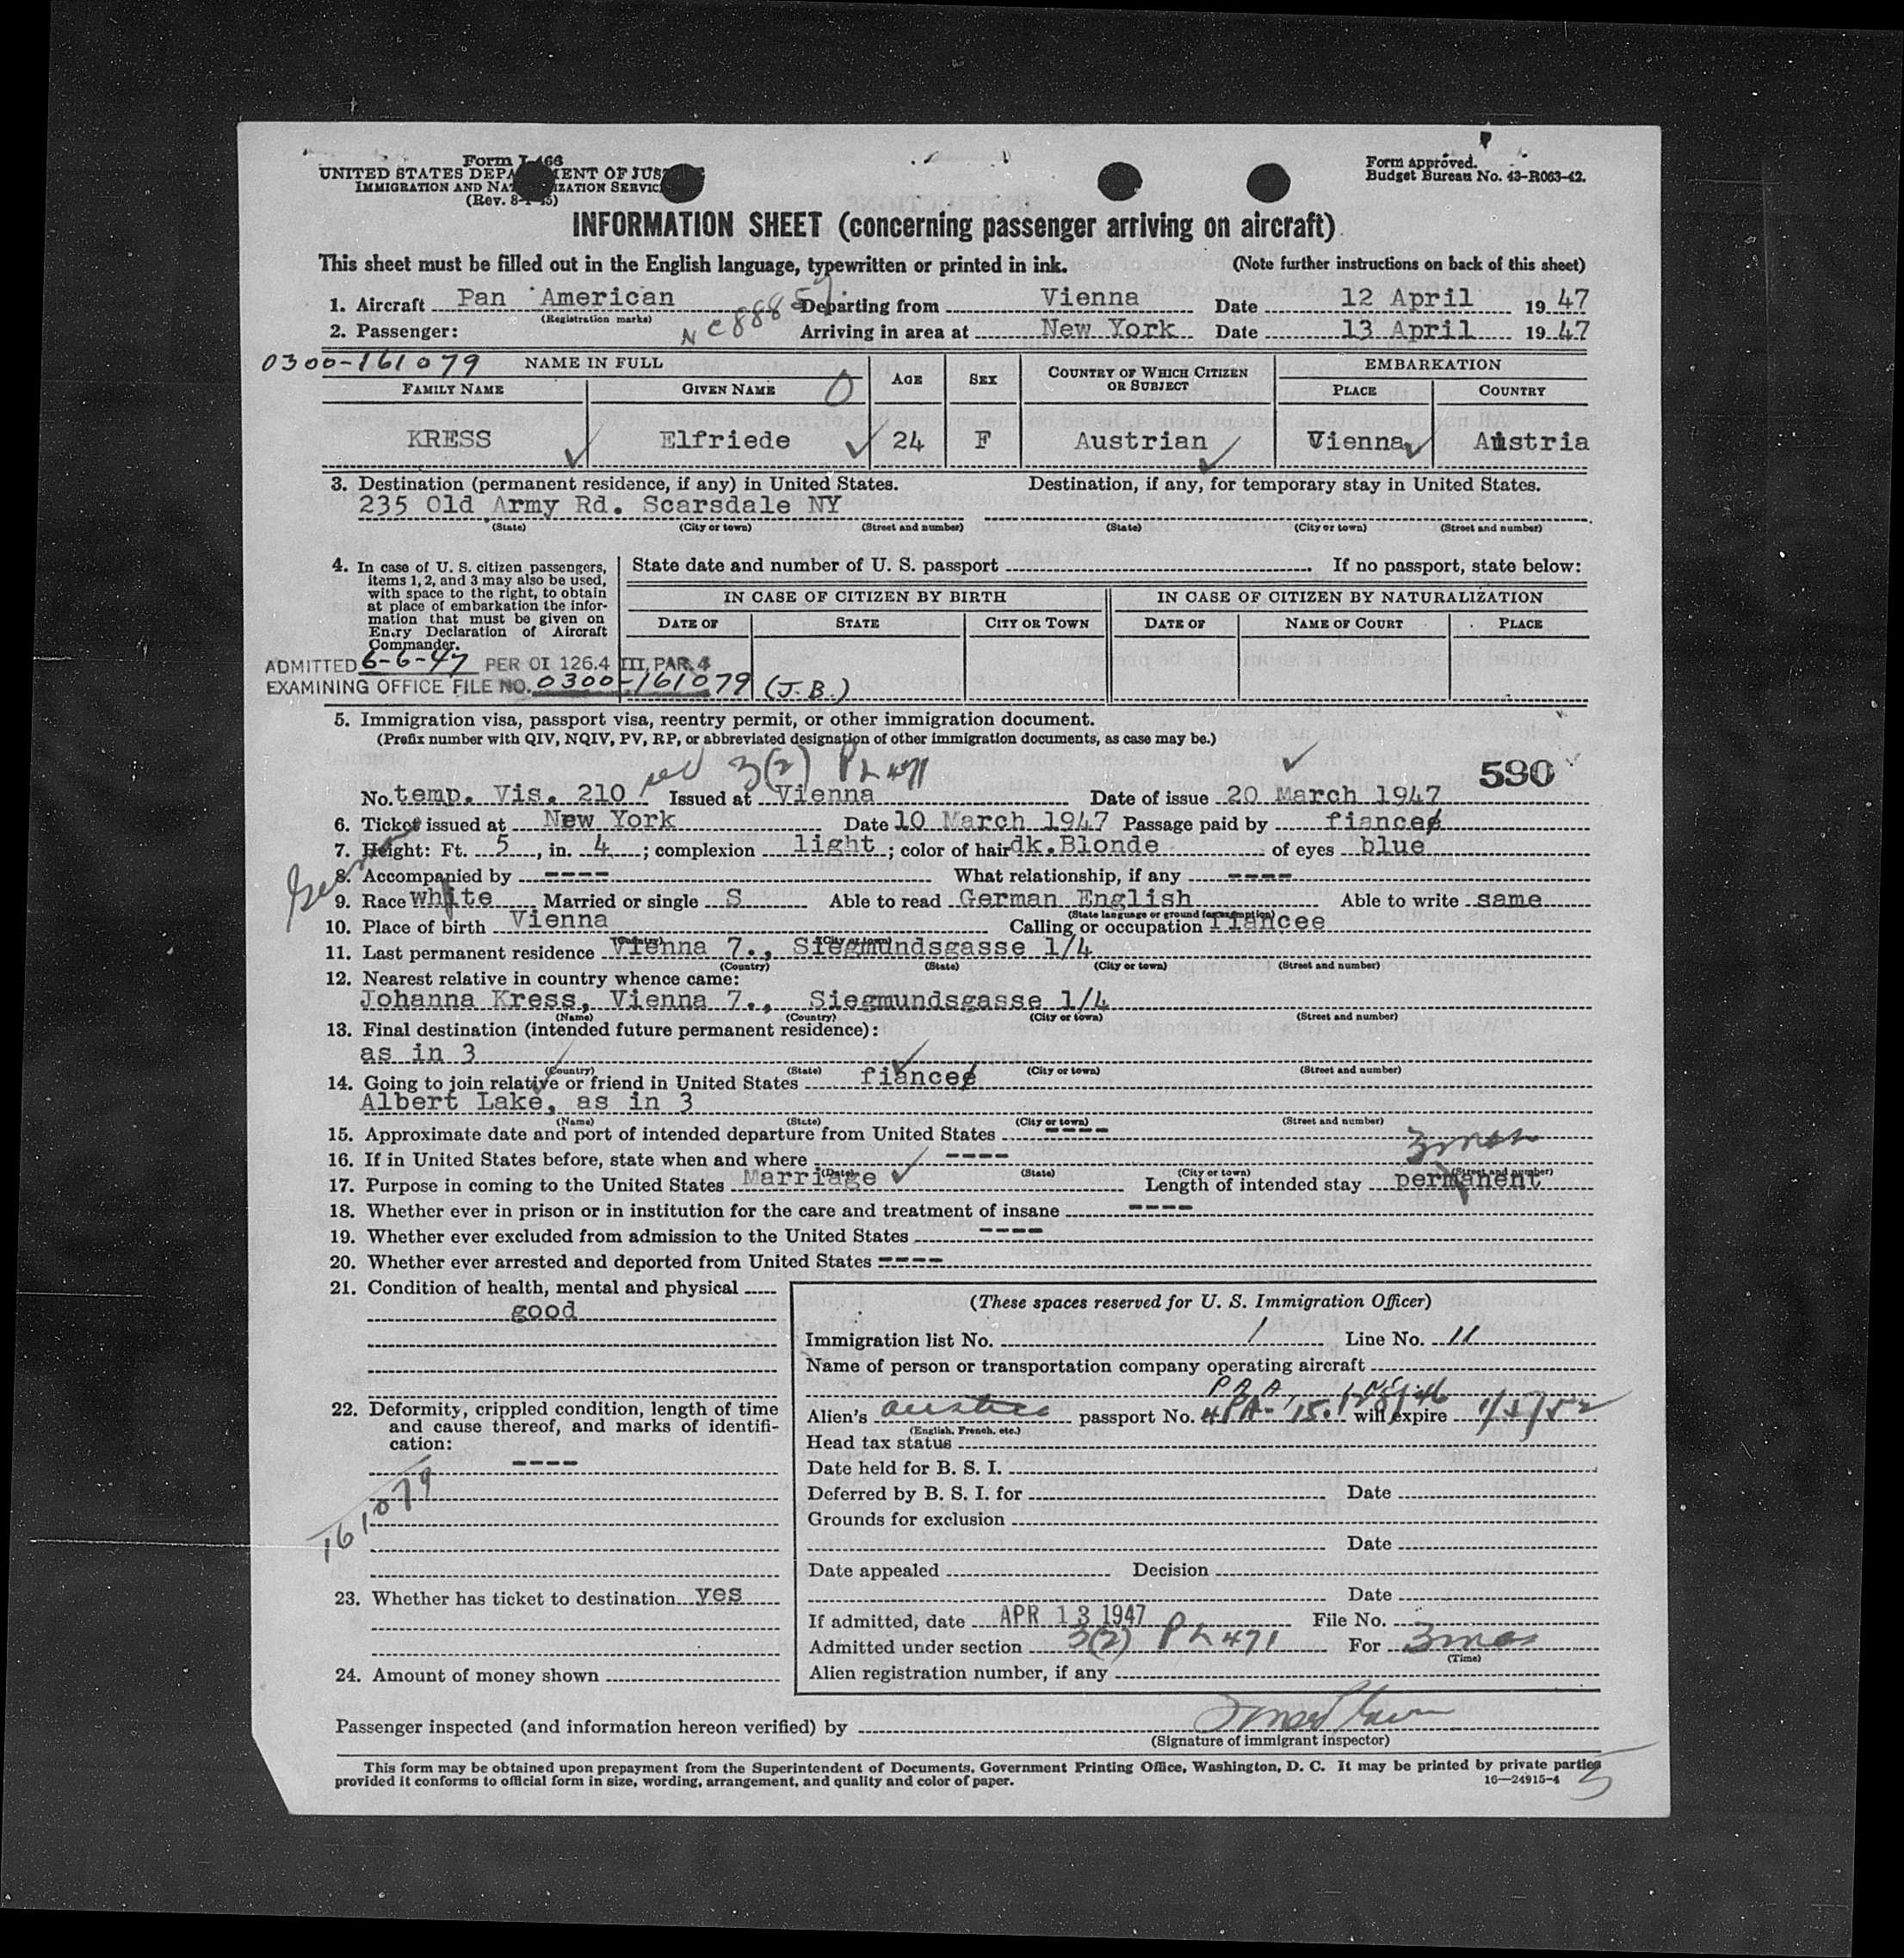 Form I-466
UNITED STATES DEPA MENT OF JUS
IMMIGRATION AND NA IZATION SERVIC
(Rev. 8-1-45)
Form approved.
Budget Bureau No. 43-R063-42.
INFORMATION SHEET (concerning passenger arriving on aircraft)
This sheet must be filled out in the English language, typewritten or printed in ink. (Note further instructions on back of this sheet)
1. Aircraft Pan American Departing from Vienna Date 12 April 1947
(Registration marks) NC88857
2. Passenger: Arriving in area at New York Date 13 April 1947
0300-161079 NAME IN FULL AGE SEX COUNTRY OF WHICH CITIZEN OR SUBJECT EMBARKATION
FAMILY NAME GIVEN NAME O PLACE COUNTRY
KRESS Elfriede 24 F Austrian Vienna Austria
3. Destination (permanent residence, if any) in United States. Destination, if any, for temporary stay in United States.
235 Old Army Rd. Scarsdale NY
(State) (City or town) (Street and number) (State) (City or town) (Street and number)
4. In case of U. S. citizen passengers, items 1, 2, and 3 may also be used, with space to the right, to obtain at place of embarkation the information that must be given on Entry Declaration of Aircraft Commander.
State date and number of U. S. passport If no passport, state below:
IN CASE OF CITIZEN BY BIRTH IN CASE OF CITIZEN BY NATURALIZATION
DATE OF STATE CITY OR TOWN DATE OF NAME OF COURT PLACE
ADMITTED 6-6-47 PER OI 126.4 III, PAR. 4
EXAMINING OFFICE FILE NO. 0300-161079 (J.B.)
5. Immigration visa, passport visa, reentry permit, or other immigration document.
(Prefix number with QIV, NQIV, PV, RP, or abbreviated designation of other immigration documents, as case may be.)
3(2) PL 471
590
No. temp. Vis. 210 Issued at Vienna Date of issue 20 March 1947
6. Ticket issued at New York Date 10 March 1947 Passage paid by fiancee
7. Height: Ft. 5, in. 4; complexion light; color of hair dk.Blonde of eyes blue
8. Accompanied by ---- What relationship, if any ----
German
9. Race white Married or single S Able to read German English Able to write same
(State language or ground for exemption)
10. Place of birth Vienna Calling or occupation fiancee
(Country) (City or town)
11. Last permanent residence Vienna 7., Siegmundsgasse 1/4
(Country) (State) (City or town) (Street and number)
12. Nearest relative in country whence came:
Johanna Kress, Vienna 7., Siegmundsgasse 1/4
(Name) (Country) (City or town) (Street and number)
13. Final destination (intended future permanent residence):
as in 3
(Country) (State) (City or town) (Street and number)
14. Going to join relative or friend in United States fiancee
Albert Lake, as in 3
(Name) (State) (City or town) (Street and number)
15. Approximate date and port of intended departure from United States ----
16. If in United States before, state when and where ----
(Date) (State) (City or town) (Street and number)
3 mos
17. Purpose in coming to the United States Marriage Length of intended stay permanent
18. Whether ever in prison or in institution for the care and treatment of insane ----
19. Whether ever excluded from admission to the United States ----
20. Whether ever arrested and deported from United States ----
21. Condition of health, mental and physical
good
22. Deformity, crippled condition, length of time and cause thereof, and marks of identification:
----
161079
23. Whether has ticket to destination yes
24. Amount of money shown
(These spaces reserved for U. S. Immigration Officer)
Immigration list No. 1 Line No. 11
Name of person or transportation company operating aircraft
PAA
Alien's passport No. will expire
(English, French, etc.)
Head tax status
Date held for B. S. I.
Deferred by B. S. I. for Date
Grounds for exclusion
Date
Date appealed Decision
Date
If admitted, date APR 13 1947 File No.
Admitted under section 3(2) PL 471 For 3 mos
(Time)
Alien registration number, if any
Passenger inspected (and information hereon verified) by
(Signature of immigrant inspector)
This form may be obtained upon prepayment from the Superintendent of Documents, Government Printing Office, Washington, D. C. It may be printed by private parties
provided it conforms to official form in size, wording, arrangement, and quality and color of paper. 16—24915-4